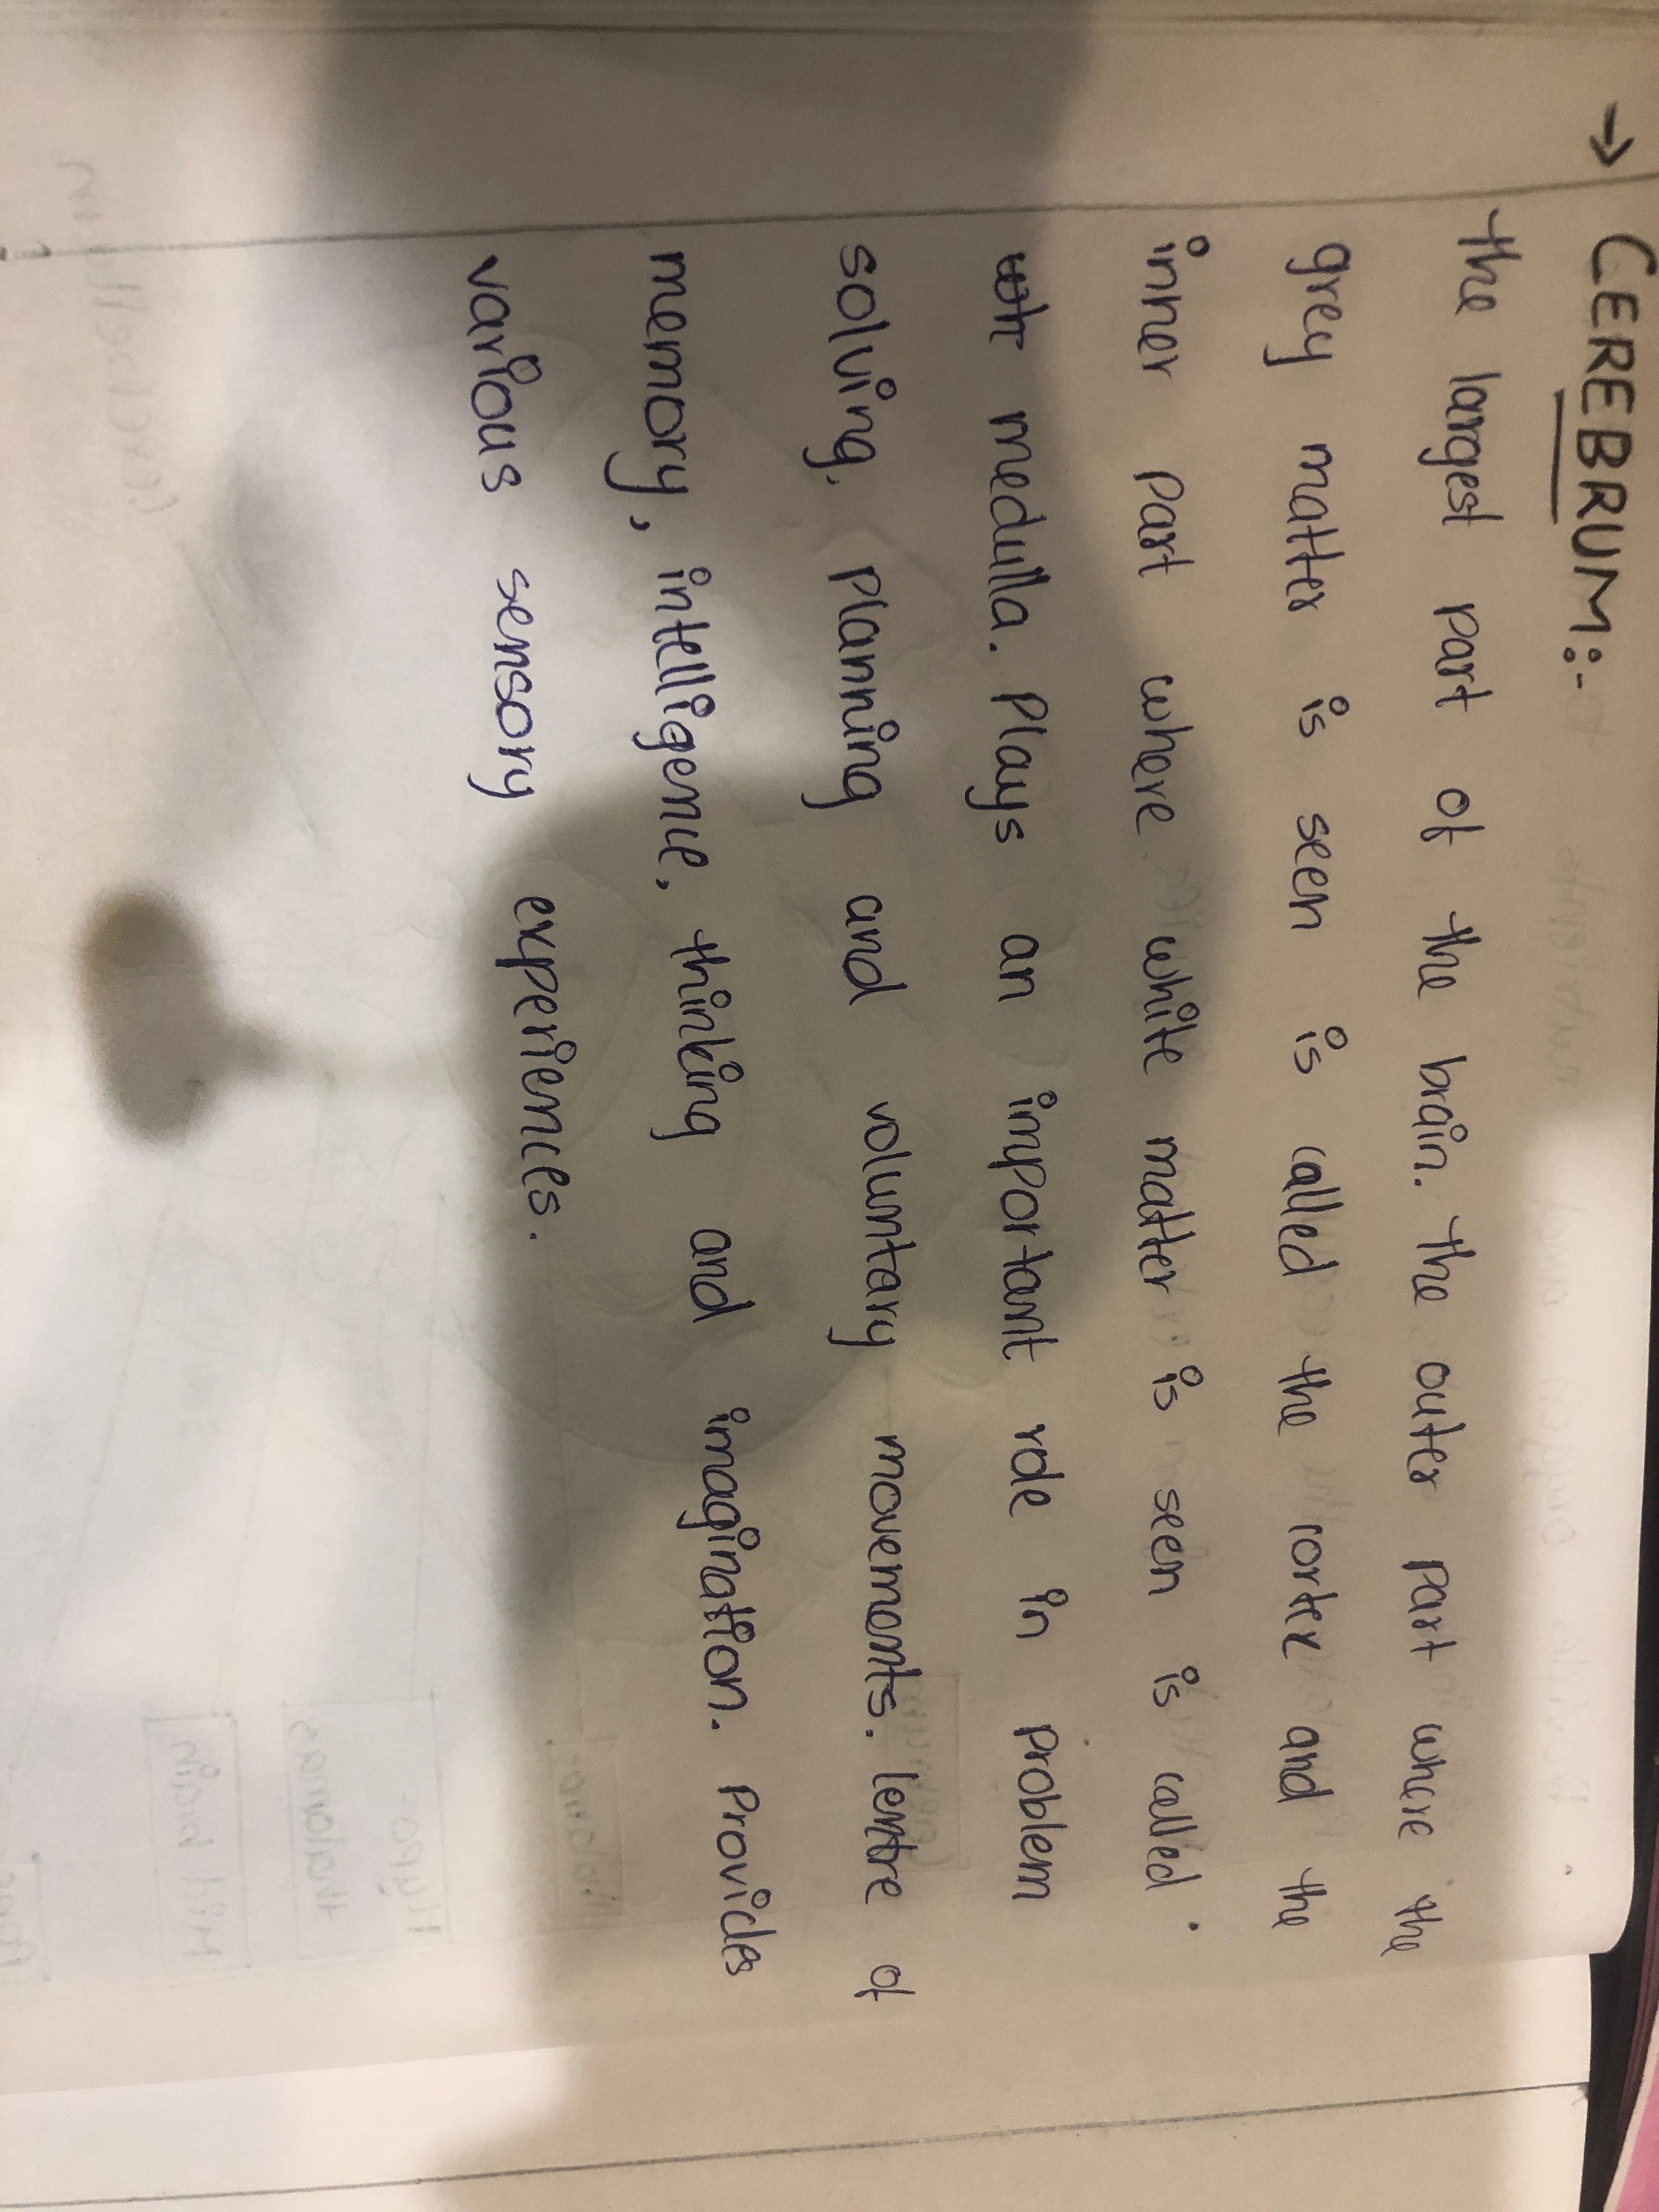 → CEREBRUM:-
The largest part of the brain. The outer part where the
grey matter is seen is called the cortex and the
inner part where white matter is seen is called
medulla. Plays an important role in problem
solving, planning and voluntary movements. Centre of
memory, intelligence, thinking and imagination. Provides
various sensory experiences.